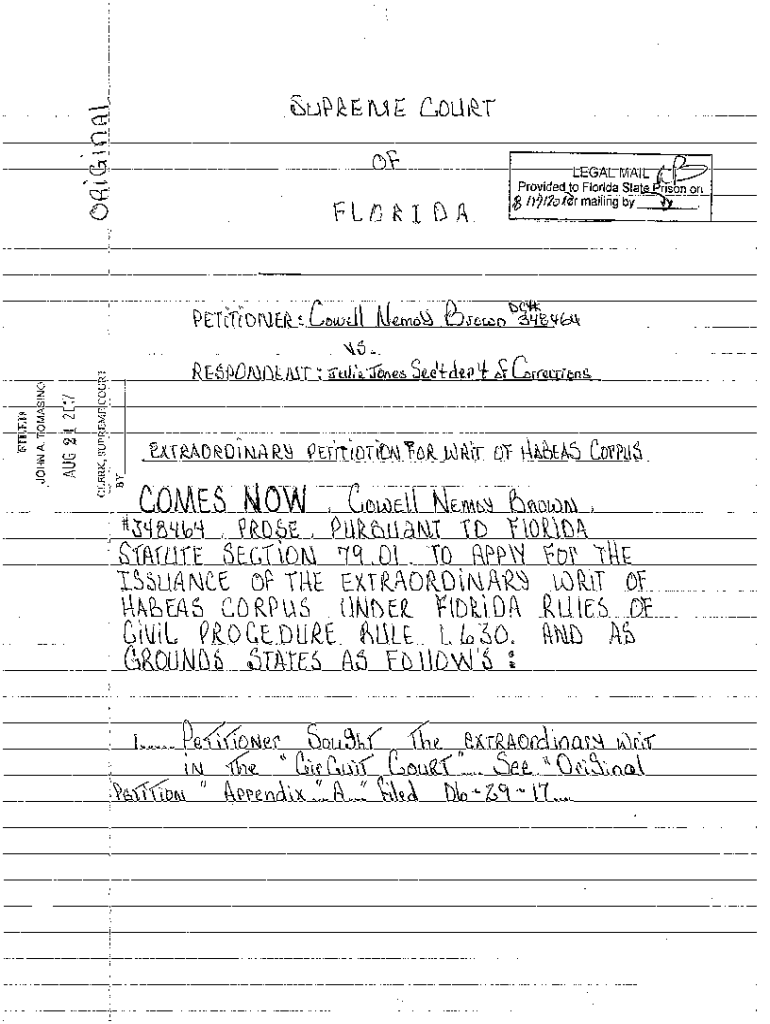 ORIGINAL
SUPREME COURT
OF
FLORIDA
LEGAL MAIL
Provided to Florida State Prison on
for mailing by
PETITIONER: Cowell Nemoy Brown DC# 348464
VS.
RESPONDENT: Julie Jones Sec't dep't of Corrections
FILED
JOHN A. TOMASINO
AUG 21 2017
CLERK, SUPREME COURT
BY
EXTRAORDINARY PETITIOTION FOR WRIT OF HABEAS CORPUS
COMES NOW, COWELL NEMOY BROWN,
#348464, PROSE, PURSUANT TO FLORIDA
STATUTE SECTION 79.01. TO APPLY FOR THE
ISSUANCE OF THE EXTRAORDINARY WRIT OF
HABEAS CORPUS UNDER FLORIDA RULES OF
CIVIL PROCEDURE RULE 1.630. AND AS
GROUNDS STATES AS FOLLOW'S:
1...... Petitioner Sought The extraordinary writ
in the "Circuit Court".. See "Original
Petition" Appendix "A" filed 06-29-17....